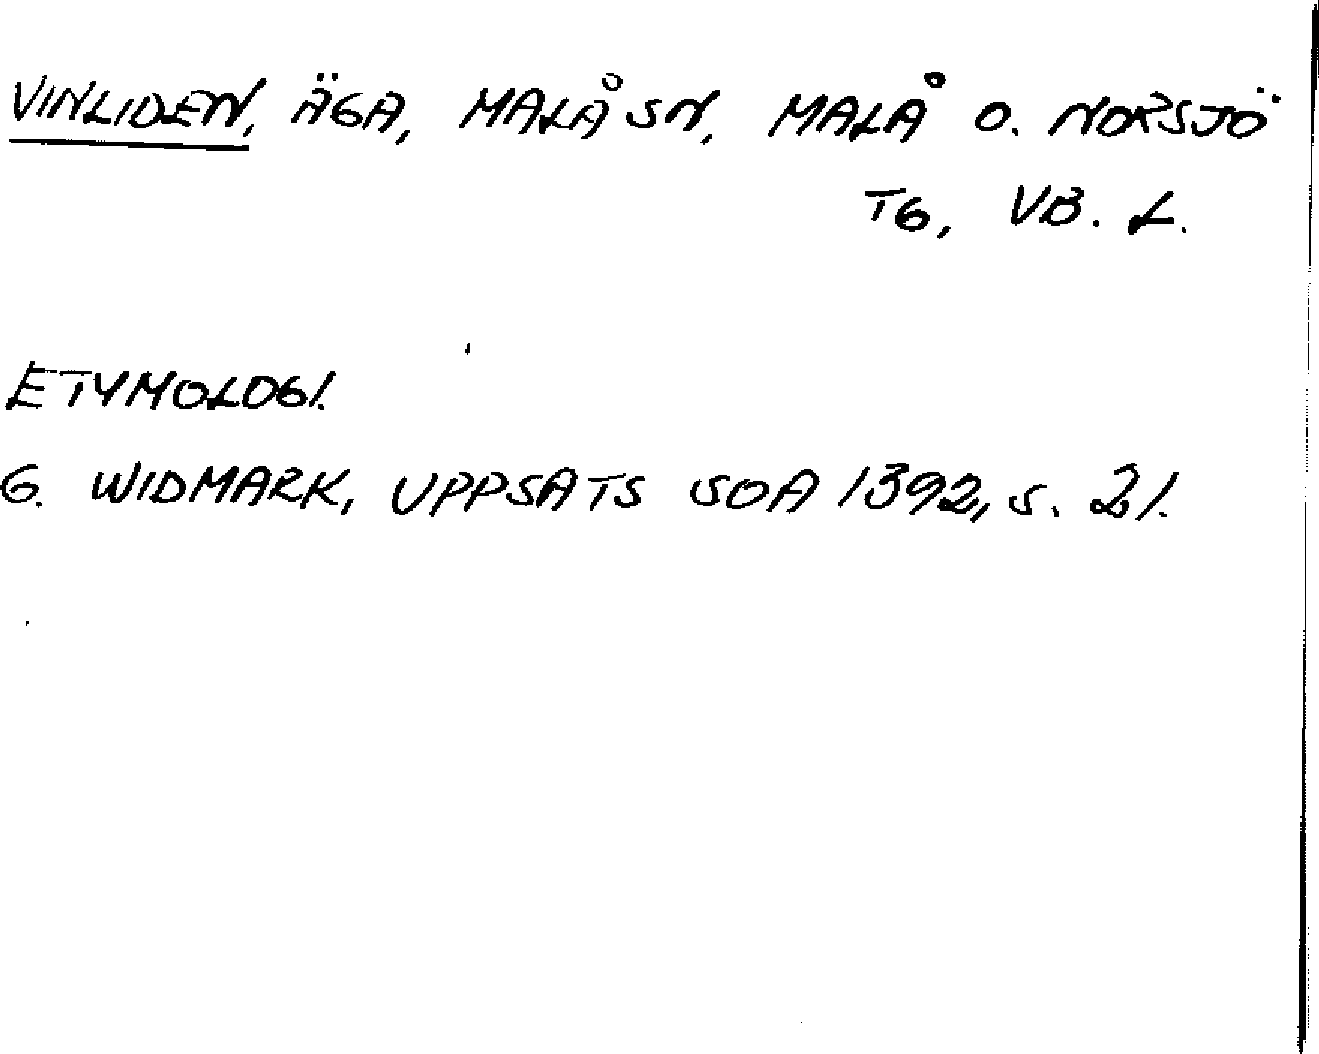 VINLIDEN, ÄGA, MALÅ SN, MALÅ O. NORSJÖ
TG, VB. L.
ETYMOLOGI.
G. WIDMARK, UPPSATS SOA 1392, S. 21.